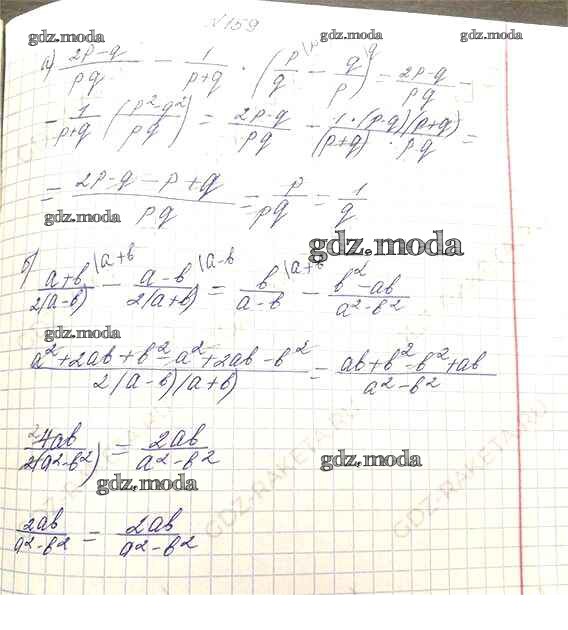 №159
gdz.moda gdz.moda gdz.moda
а) (2p-q)/(pq) - 1/(p+q) · (p/q \p - q/p \q) = (2p-q)/(pq) -
- 1/(p+q) ((p²-q²)/(pq)) = (2p-q)/(pq) - (1·(p-q)(p+q))/((p+q)·pq) =
= (2p-q-p+q)/(pq) = p/(pq) = 1/q
gdz.moda
gdz.moda
б) (a+b)/(2(a-b)) \a+b - (a-b)/(2(a+b)) \a-b = b/(a-b) \a+b - (b²-ab)/(a²-b²)
gdz.moda
(a²+2ab+b²-a²+2ab-b²)/(2(a-b)(a+b)) = (ab+b²-b²+ab)/(a²-b²)
²4ab/(2(a²-b²)) = 2ab/(a²-b²)
gdz.moda gdz.moda
2ab/(a²-b²) = 2ab/(a²-b²)
gdz.moda
GDZ-RAKETA.RU
GDZ-RAKETA.RU